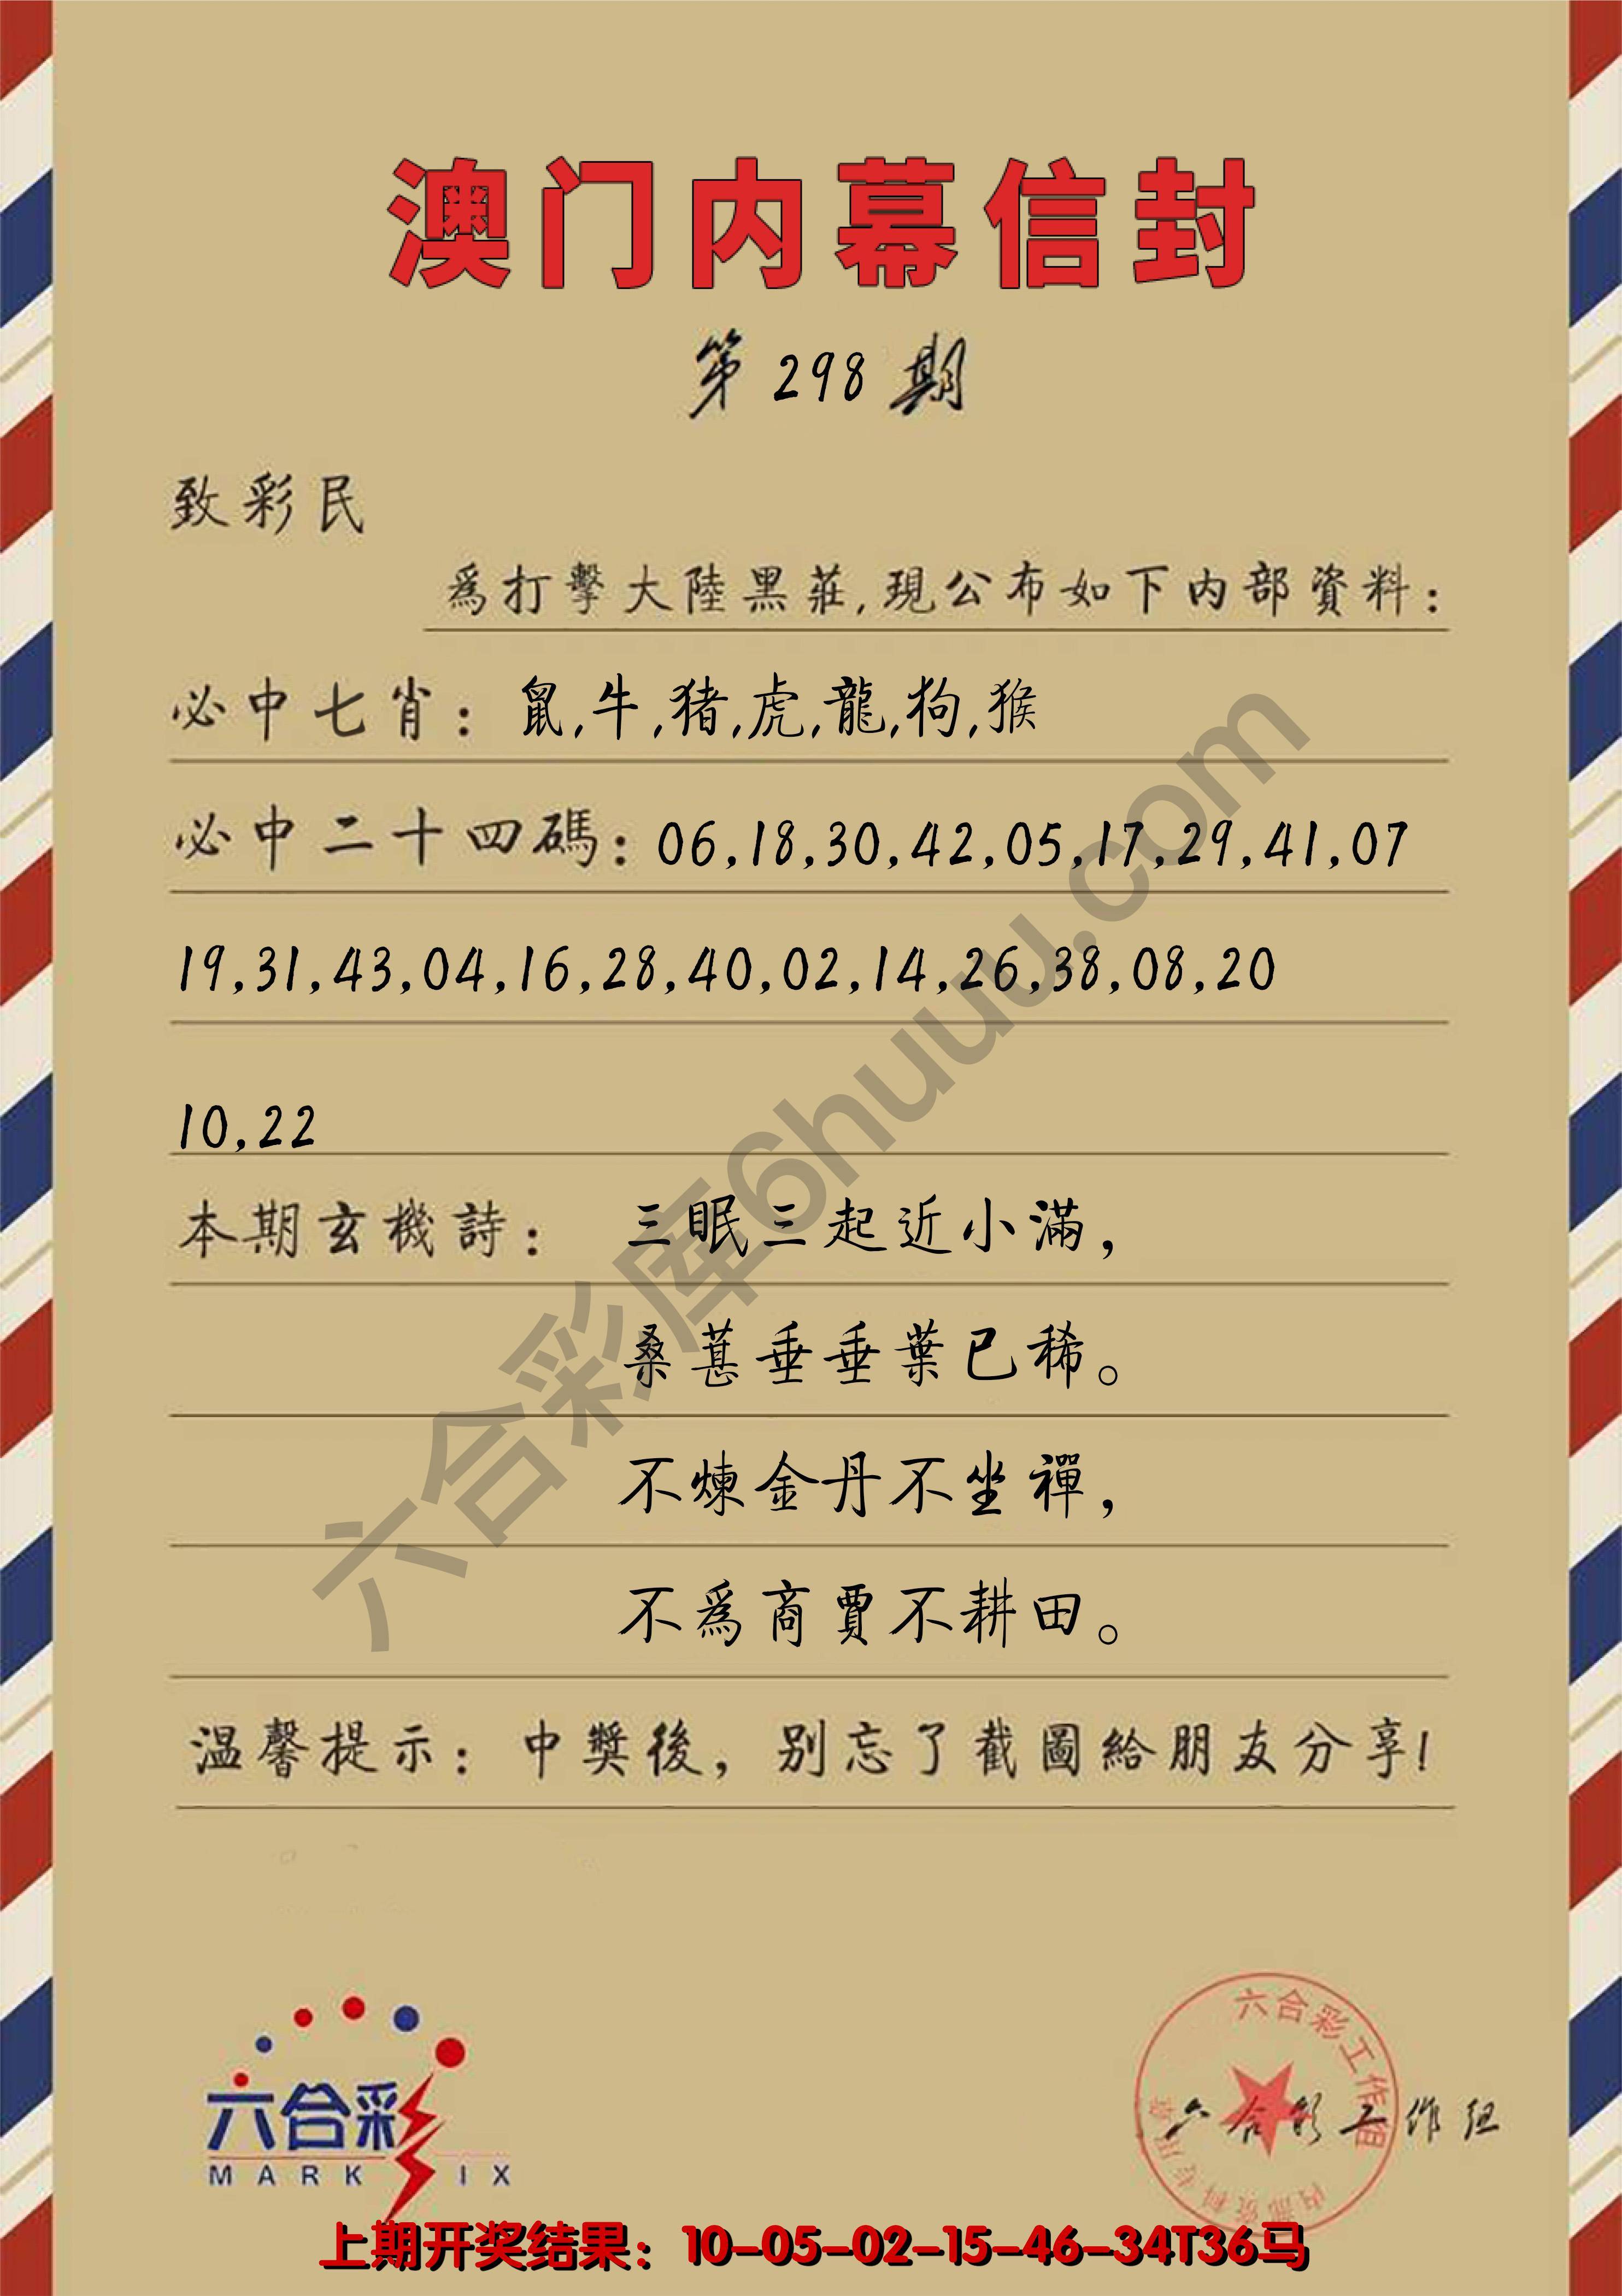 澳门内幕信封
第298期
致彩民
爲打擊大陸黑莊,現公布如下内部資料：
必中七肖：鼠,牛,猪,虎,龍,狗,猴
必中二十四碼：06,18,30,42,05,17,29,41,07
19,31,43,04,16,28,40,02,14,26,38,08,20
10,22
本期玄機詩：三眠三起近小滿，
桑葚垂垂葉已稀。
不煉金丹不坐禪，
不爲商賈不耕田。
温馨提示：中獎後，别忘了截圖給朋友分享!
六合彩库6huuu.com
六合彩
MARK SIX
六合彩工作组
内部资料专用章
六合彩工作组
上期开奖结果：10-05-02-15-46-34T36马